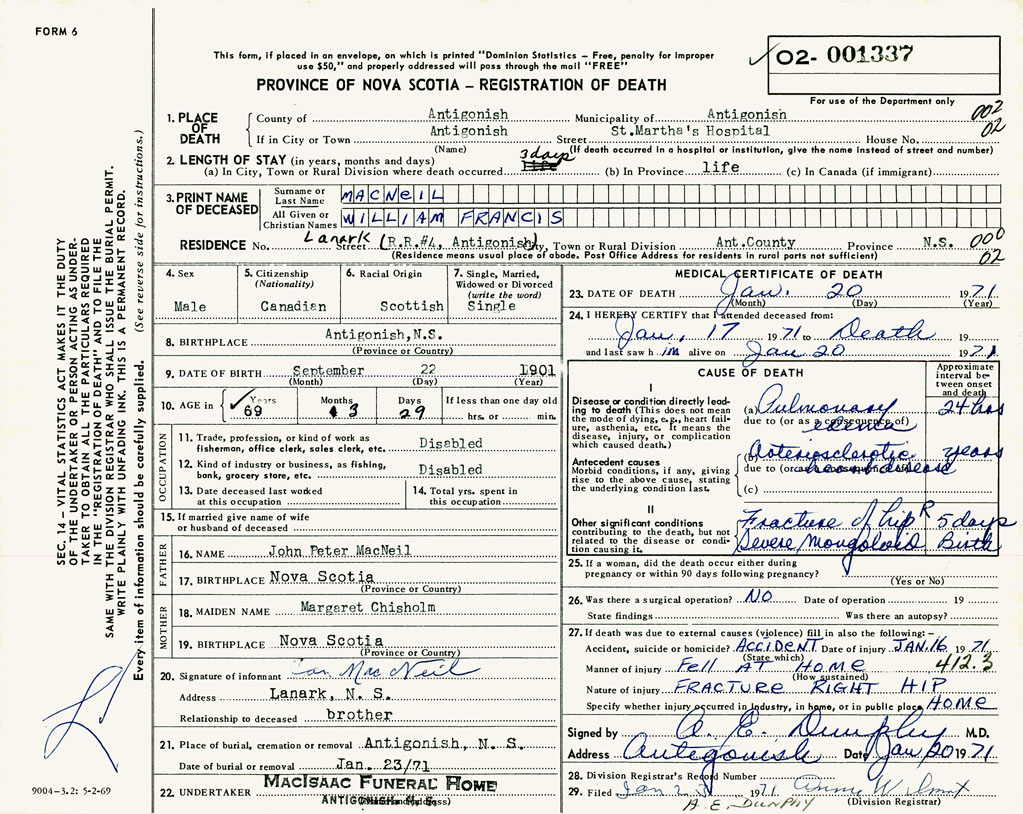 FORM 6
This form, if placed in an envelope, on which is printed "Dominion Statistics – Free, penalty for improper
use $50," and properly addressed will pass through the mail "FREE"
02- 001337
PROVINCE OF NOVA SCOTIA – REGISTRATION OF DEATH
For use of the Department only
1. PLACE OF DEATH County of Antigonish Municipality of Antigonish 002
If in City or Town Antigonish Street St.Martha's Hospital House No. 02
(Name) (If death occurred in a hospital or institution, give the name instead of street and number)
2. LENGTH OF STAY (in years, months and days)
(a) In City, Town or Rural Division where death occurred 3 days life (b) In Province life (c) In Canada (if immigrant)
3. PRINT NAME OF DECEASED Surname or Last Name MACNEIL
All Given or Christian Names WILLIAM FRANCIS
RESIDENCE No. Lanark Street (R.R.#4, Antigonish) City, Town or Rural Division Ant.County Province N.S. 000
(Residence means usual place of abode. Post Office Address for residents in rural parts not sufficient) 02
4. Sex Male
5. Citizenship (Nationality) Canadian
6. Racial Origin Scottish
7. Single, Married, Widowed or Divorced (write the word) Single
8. BIRTHPLACE Antigonish,N.S.
(Province or Country)
9. DATE OF BIRTH September 22 1901
(Month) (Day) (Year)
10. AGE in Years 69 Months 3 Days 29 If less than one day old hrs. or min.
OCCUPATION
11. Trade, profession, or kind of work as fisherman, office clerk, sales clerk, etc. Disabled
12. Kind of industry or business, as fishing, bank, grocery store, etc. Disabled
13. Date deceased last worked at this occupation
14. Total yrs. spent in this occupation
15. If married give name of wife or husband of deceased
FATHER
16. NAME John Peter MacNeil
17. BIRTHPLACE Nova Scotia
(Province or Country)
MOTHER
18. MAIDEN NAME Margaret Chisholm
19. BIRTHPLACE Nova Scotia
(Province or Country)
20. Signature of informant MacNeil
Address Lanark, N. S.
Relationship to deceased brother
21. Place of burial, cremation or removal Antigonish, N. S.
Date of burial or removal Jan. 23/71
22. UNDERTAKER MACISAAC FUNERAL HOME
ANTIGONISH, N. S.
MEDICAL CERTIFICATE OF DEATH
23. DATE OF DEATH Jan. 20 1971
(Month) (Day) (Year)
24. I HEREBY CERTIFY that I attended deceased from:
Jan, 17 1971 to Death 19
and last saw him alive on Jan 20 1971
CAUSE OF DEATH
Approximate interval between onset and death
I
Disease or condition directly leading to death (This does not mean the mode of dying, e.g., heart failure, asthenia, etc. It means the disease, injury, or complication which caused death.)
(a) Pulmonary edema 24 hrs
due to (or as a consequence of)
Antecedent causes
Morbid conditions, if any, giving rise to the above cause, stating the underlying condition last.
(b) Arteriosclerotic heart disease years
due to (or as a consequence of)
(c)
II
Other significant conditions contributing to the death, but not related to the disease or condition causing it.
Fracture of hip R 5 days
Severe mongoloid Birth
25. If a woman, did the death occur either during pregnancy or within 90 days following pregnancy?
(Yes or No)
26. Was there a surgical operation? NO Date of operation 19
State findings Was there an autopsy?
27. If death was due to external causes (violence) fill in also the following:–
Accident, suicide or homicide? ACCIDENT Date of injury JAN.16 1971
(State which)
Manner of injury FELL AT HOME 412.3
(How sustained)
Nature of injury FRACTURE RIGHT HIP
Specify whether injury occurred in industry, in home, or in public place HOME
Signed by A. E. Dunphy M.D.
Address Antigonish Date Jan 20 1971
28. Division Registrar's Record Number
29. Filed Jan 1971 Annie Wilmot
A.E. DUNPHY (Division Registrar)
SEC. 14 – VITAL STATISTICS ACT MAKES IT THE DUTY
OF THE UNDERTAKER OR PERSON ACTING AS UNDER-
TAKER TO OBTAIN ALL THE PARTICULARS REQUIRED
IN THE "REGISTRATION OF DEATH" AND TO FILE THE
SAME WITH THE DIVISION REGISTRAR WHO SHALL ISSUE THE BURIAL PERMIT.
WRITE PLAINLY WITH UNFADING INK. THIS IS A PERMANENT RECORD.
Every item of information should be carefully supplied. (See reverse side for instructions.)
9004–3.2: 5-2-69